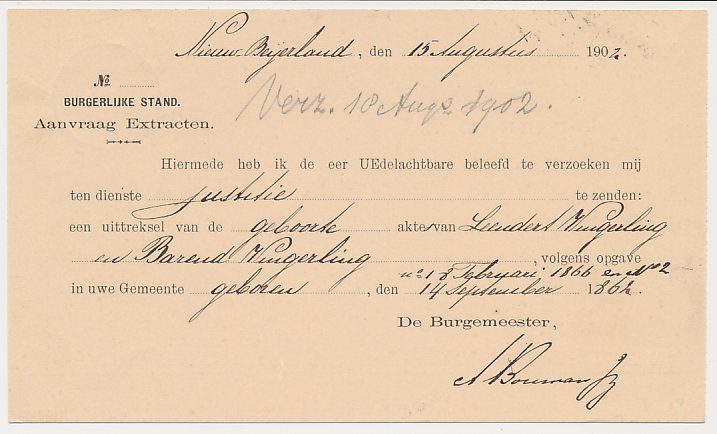 Nieuw-Beijerland, den 15 Augustus 1902.
No
BURGERLIJKE STAND.
Aanvraag Extracten.
Verz. 18 Augs 1902.
Hiermede heb ik de eer UEdelachtbare beleefd te verzoeken mij
ten dienste justitie te zenden:
een uittreksel van de geboorte akte van Leendert Vingerling
en Barend Vingerling, volgens opgave
no 1 8 Februari 1866 en No 2
in uwe Gemeente geboren, den 14 September 1862.
De Burgemeester,
A Bouman Jz